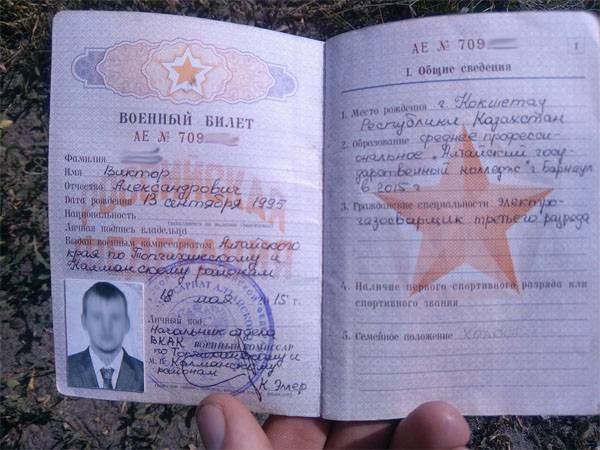 ВОЕННЫЙ БИЛЕТ
АЕ № 709
Фамилия
Имя Виктор
Отчество Александрович
Дата рождения 13 сентября 1995
Национальность
Личная подпись владельца
Выдан военным комиссариатом Алтайского
края по Топчихинскому и
Калманскому районам
28 мая 2015 г.
Личный код
Начальник отдела
ВКАК ВОЕННЫЙ КОМИССАР
по Топчихинскому и
м.п. Калманскому
районам
К. Эллер
АЕ № 709
1
1. Общие сведения
1. Место рождения г. Кокшетау
Республики Казахстан
2. Образование среднее професси-
ональное "Алтайский госу-
дарственный колледж" г Барнаул
в 2015 г
3. Гражданские специальности Электро-
газосварщик третьего разряда
4. Наличие первого спортивного разряда или
спортивного звания
5. Семейное положение